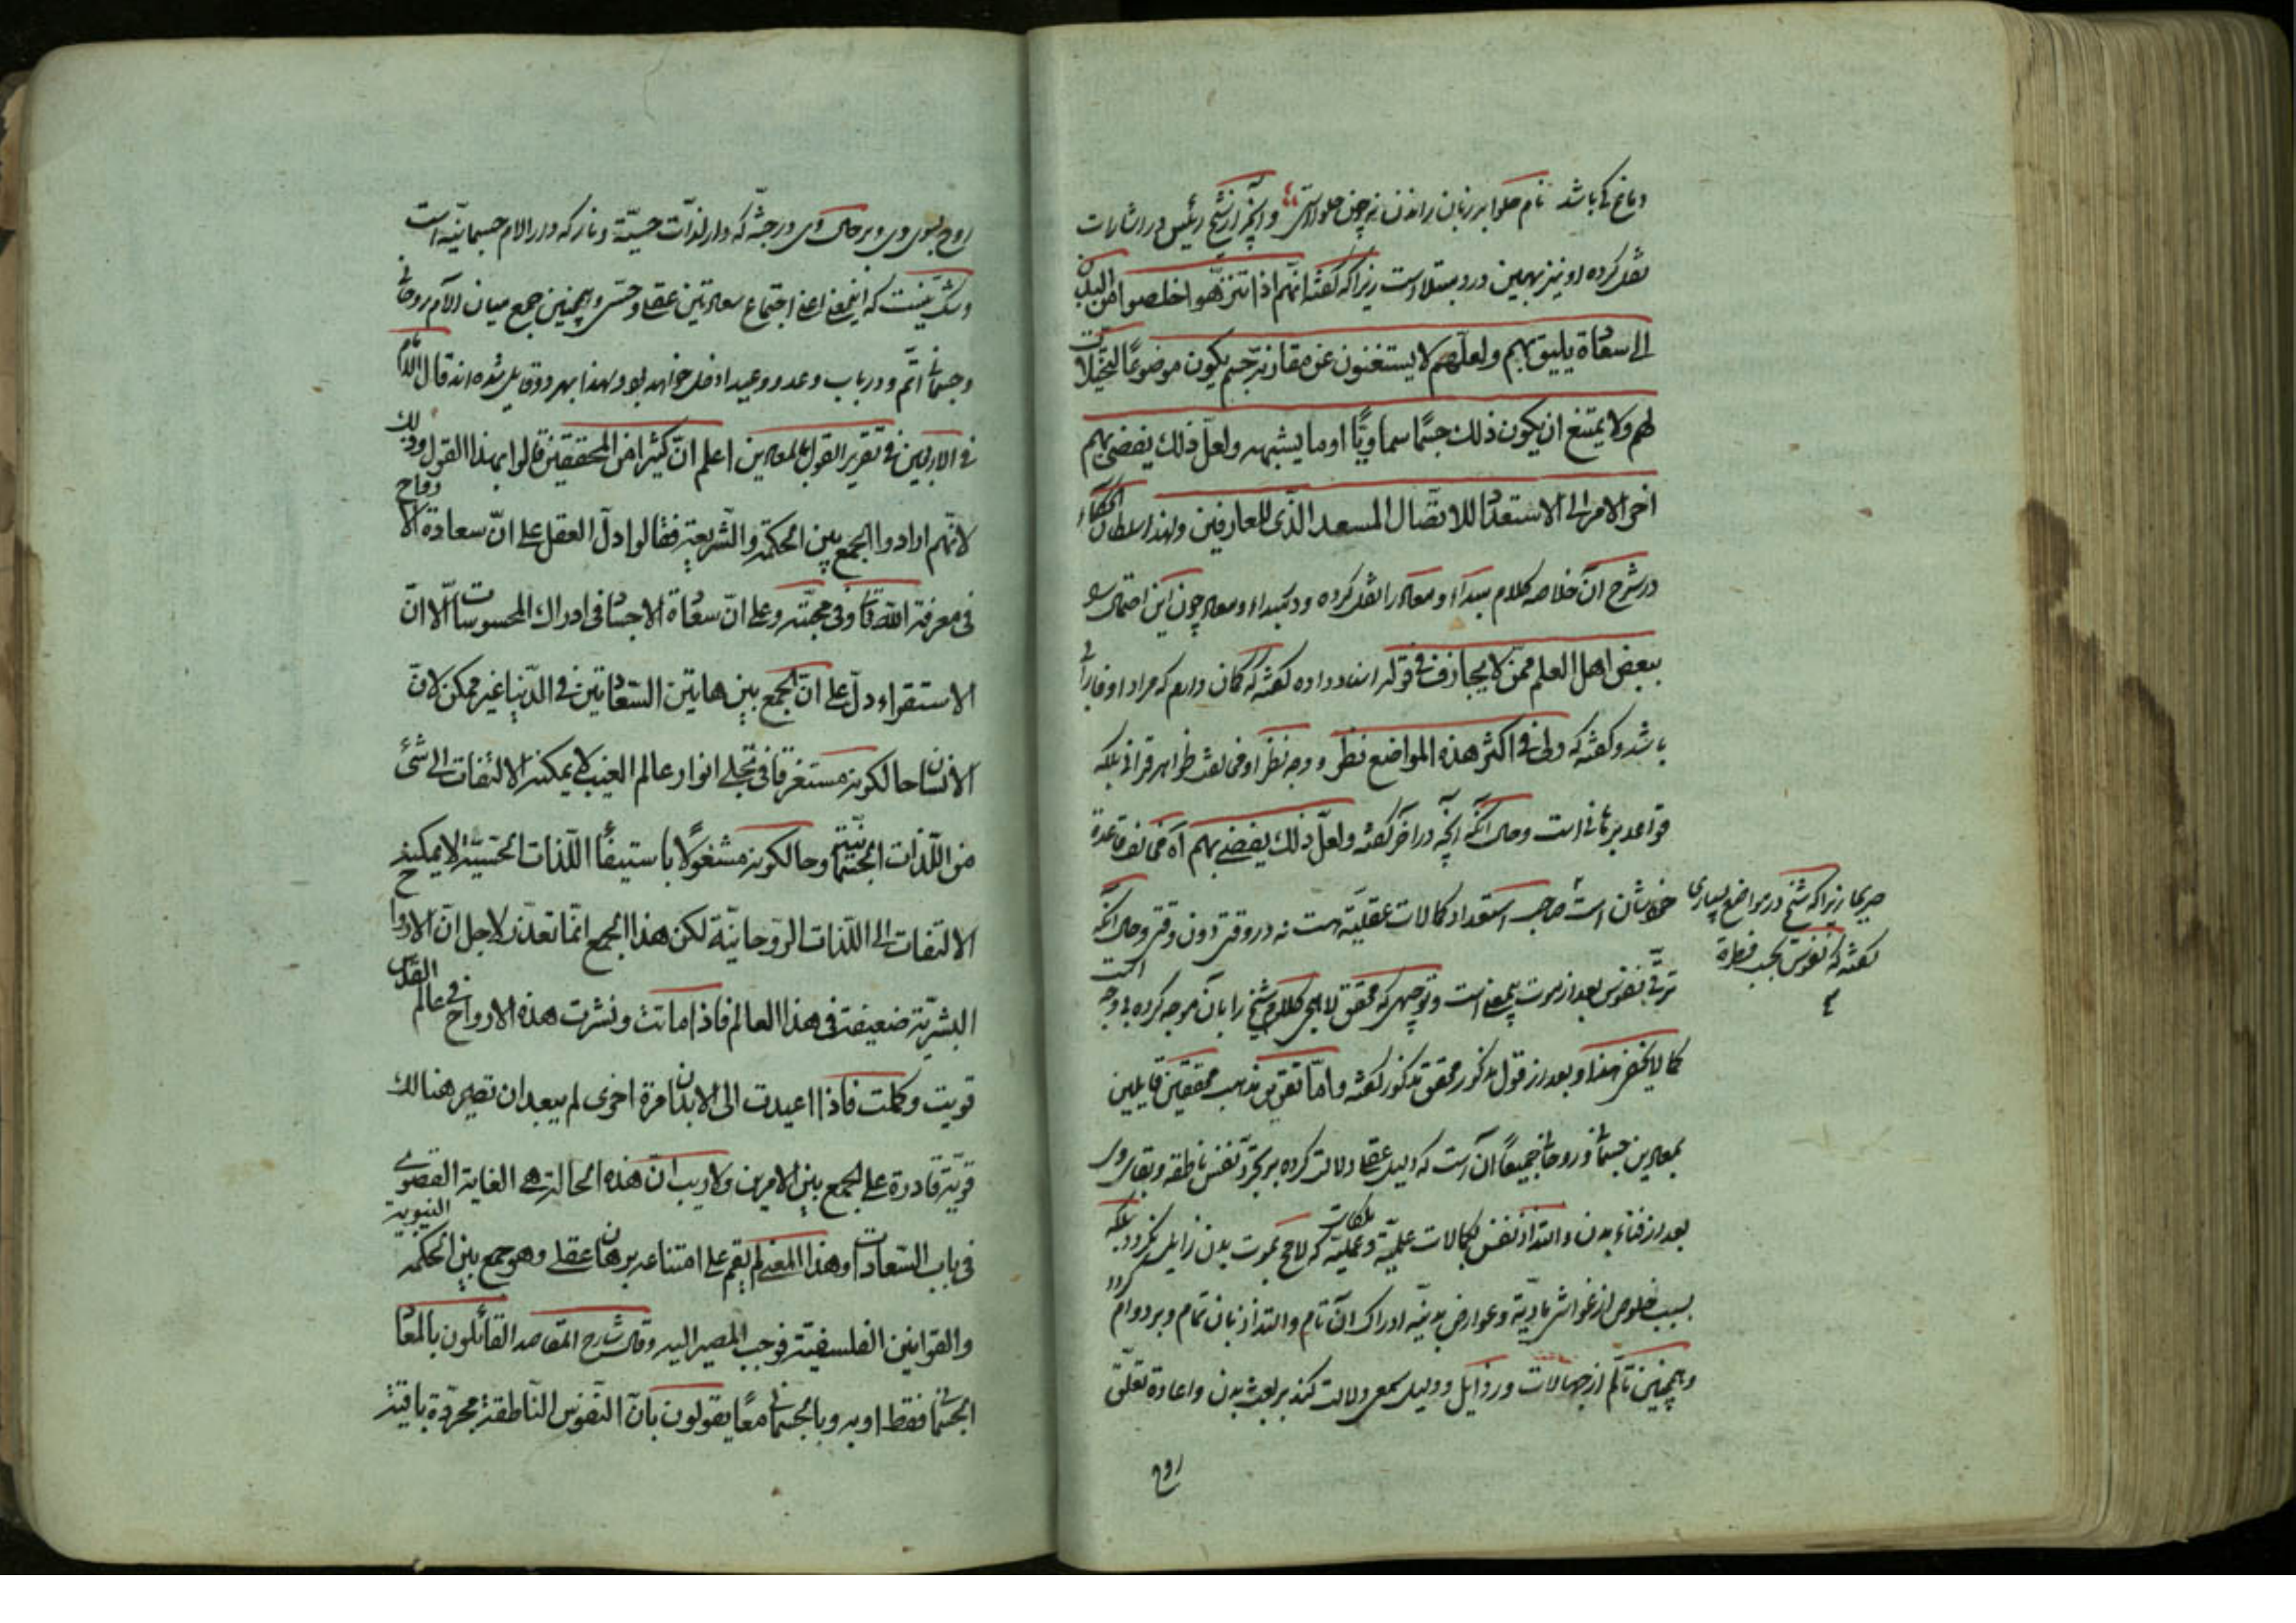 نام حلوا بر زبان راندن نه چون حلواستی و آنچه از شیخ رئیس در اشارات
نقل کرده او نیز بهمین درد مبتلاست زیرا که گفته انهم اذا تنزهوا خلصوا من البدن
الی سعادة یلیق بهم و لعلهم لا یستغنون عن مقارنة جسم یکون موضوعا لتخیلات
لهم ولا یمتنع ان یکون ذلک جسما سماویا او ما یشبهه ولعل ذلک یفضی بهم
اخر الامر الی الاستعداد للاتصال المسعد الذی للعارفین ولهذا سلطان الحکماء
در شرح آن خلاصه کلام مبداء و معاد را نقل کرده و در مبداء و معاد چون این احتمال را
ببعض اهل العلم ممن لا یجازف فی قوله اسناد داده گفته که گمان دارم که مراد او فارابی
باشد و گفته که ولی فی اکثر هذه المواضع نظر و وجه نظر او مخالفت ظواهر قرانی بلکه
قواعد برهانی است و حال آنکه آنچه در آخر گفته ولعل ذلک یفضی بهم آه مخالف قاعدة
خودشان است صاحب استعداد کمالات عقلیه است نه در وقتی دون وقتی و حال آنکه
صریحا زیرا که شیخ در مواضع بسیاری
گفته که نفوس بحسب فطرة
ترقی نفوس بعد از موت بیمعنی است و توجیهی که محقق لاهجی کلام شیخ را بآن موجه کرده بی وجه است
کما لا یخفی هذا و بعد از قول مذکور محقق مذکور گفته و اما تقریر مذهب محققین قایلین
بمعادین جسمانی و روحانی جمیعا آن است که دلیل عقلی دلالت کرده بر تجرد نفس ناطقه و بقای وی
بعد از فناء بدن و التذاذ نفس بکمالات علمیه و ملکات عملیه که لامح بموت بدن زایل نگردد بلکه
بسبب خلوص از غواشی مادیة و عوارض بدنیه ادراک آن تام و التذاذ بآن تمام و بر دوام گردد
و همچنین تألم از جهالات و رذایل و دلیل سمعی دلالت کند بر بعث بدن و اعادة تعلق
روح
روح بسوی وی و بر حال وی در جنة که دار لذات حسیة و نار که دار الام جسمانیه است
و شک نیست که اینمعنی اعنی اجتماع سعادتین عقلی و حسی و همچنین جمع میان الام روحانی
و جسمانی اتم و در باب وعد و وعید ادخل خواهد بود و لهذا بهر دو قایل شده اند قال الامام
فی الاربعین فی تقریر القول بالمعادین اعلم ان کثیرا من المحققین قالوا بهذا القول وذلک
لانهم ارادوا الجمع بین الحکمة والشریعة فقالوا دل العقل علی ان سعادة الارواح
فی معرفة الله تعالی وفی محبته وعلی ان سعادة الاجساد فی ادراک المحسوسات الا ان
الاستقراء دل علی ان الجمع بین هاتین السعادتین فی الدنیا غیر ممکن لان
الانسان حالکونه مستغرقا فی تجلی انوار عالم الغیب لا یمکنه الالتفات الی شیء
من اللذات الجسمانیة وحالکونه مشغولا باستیفاء اللذات الحسیة لا یمکنه
الالتفات الی اللذات الروحانیة لکن هذا الجمع انما تعذر لاجل ان الارواح
البشریة ضعیفة فی هذا العالم فاذا ماتت ونشرت هذه الارواح فی عالم القدس
قویت وکملت فاذا اعیدت الی الابدان مرة اخری لم یبعد ان تصیر هنالک
قویة قادرة علی الجمع بین الامرین ولا ریب ان هذه الحالة هی الغایة القصوی
فی باب السعادات وهذا المعنی لم یقم علی امتناعه برهان عقلی وهو جمع بین الحکمة النبویة
والقوانین الفلسفیة فوجب المصیر الیه وقال شارح المقاصد القائلون بالمعاد
الجسمانی فقط او به وبالجسمانی معا یقولون بان النفوس الناطقة مجردة باقیة